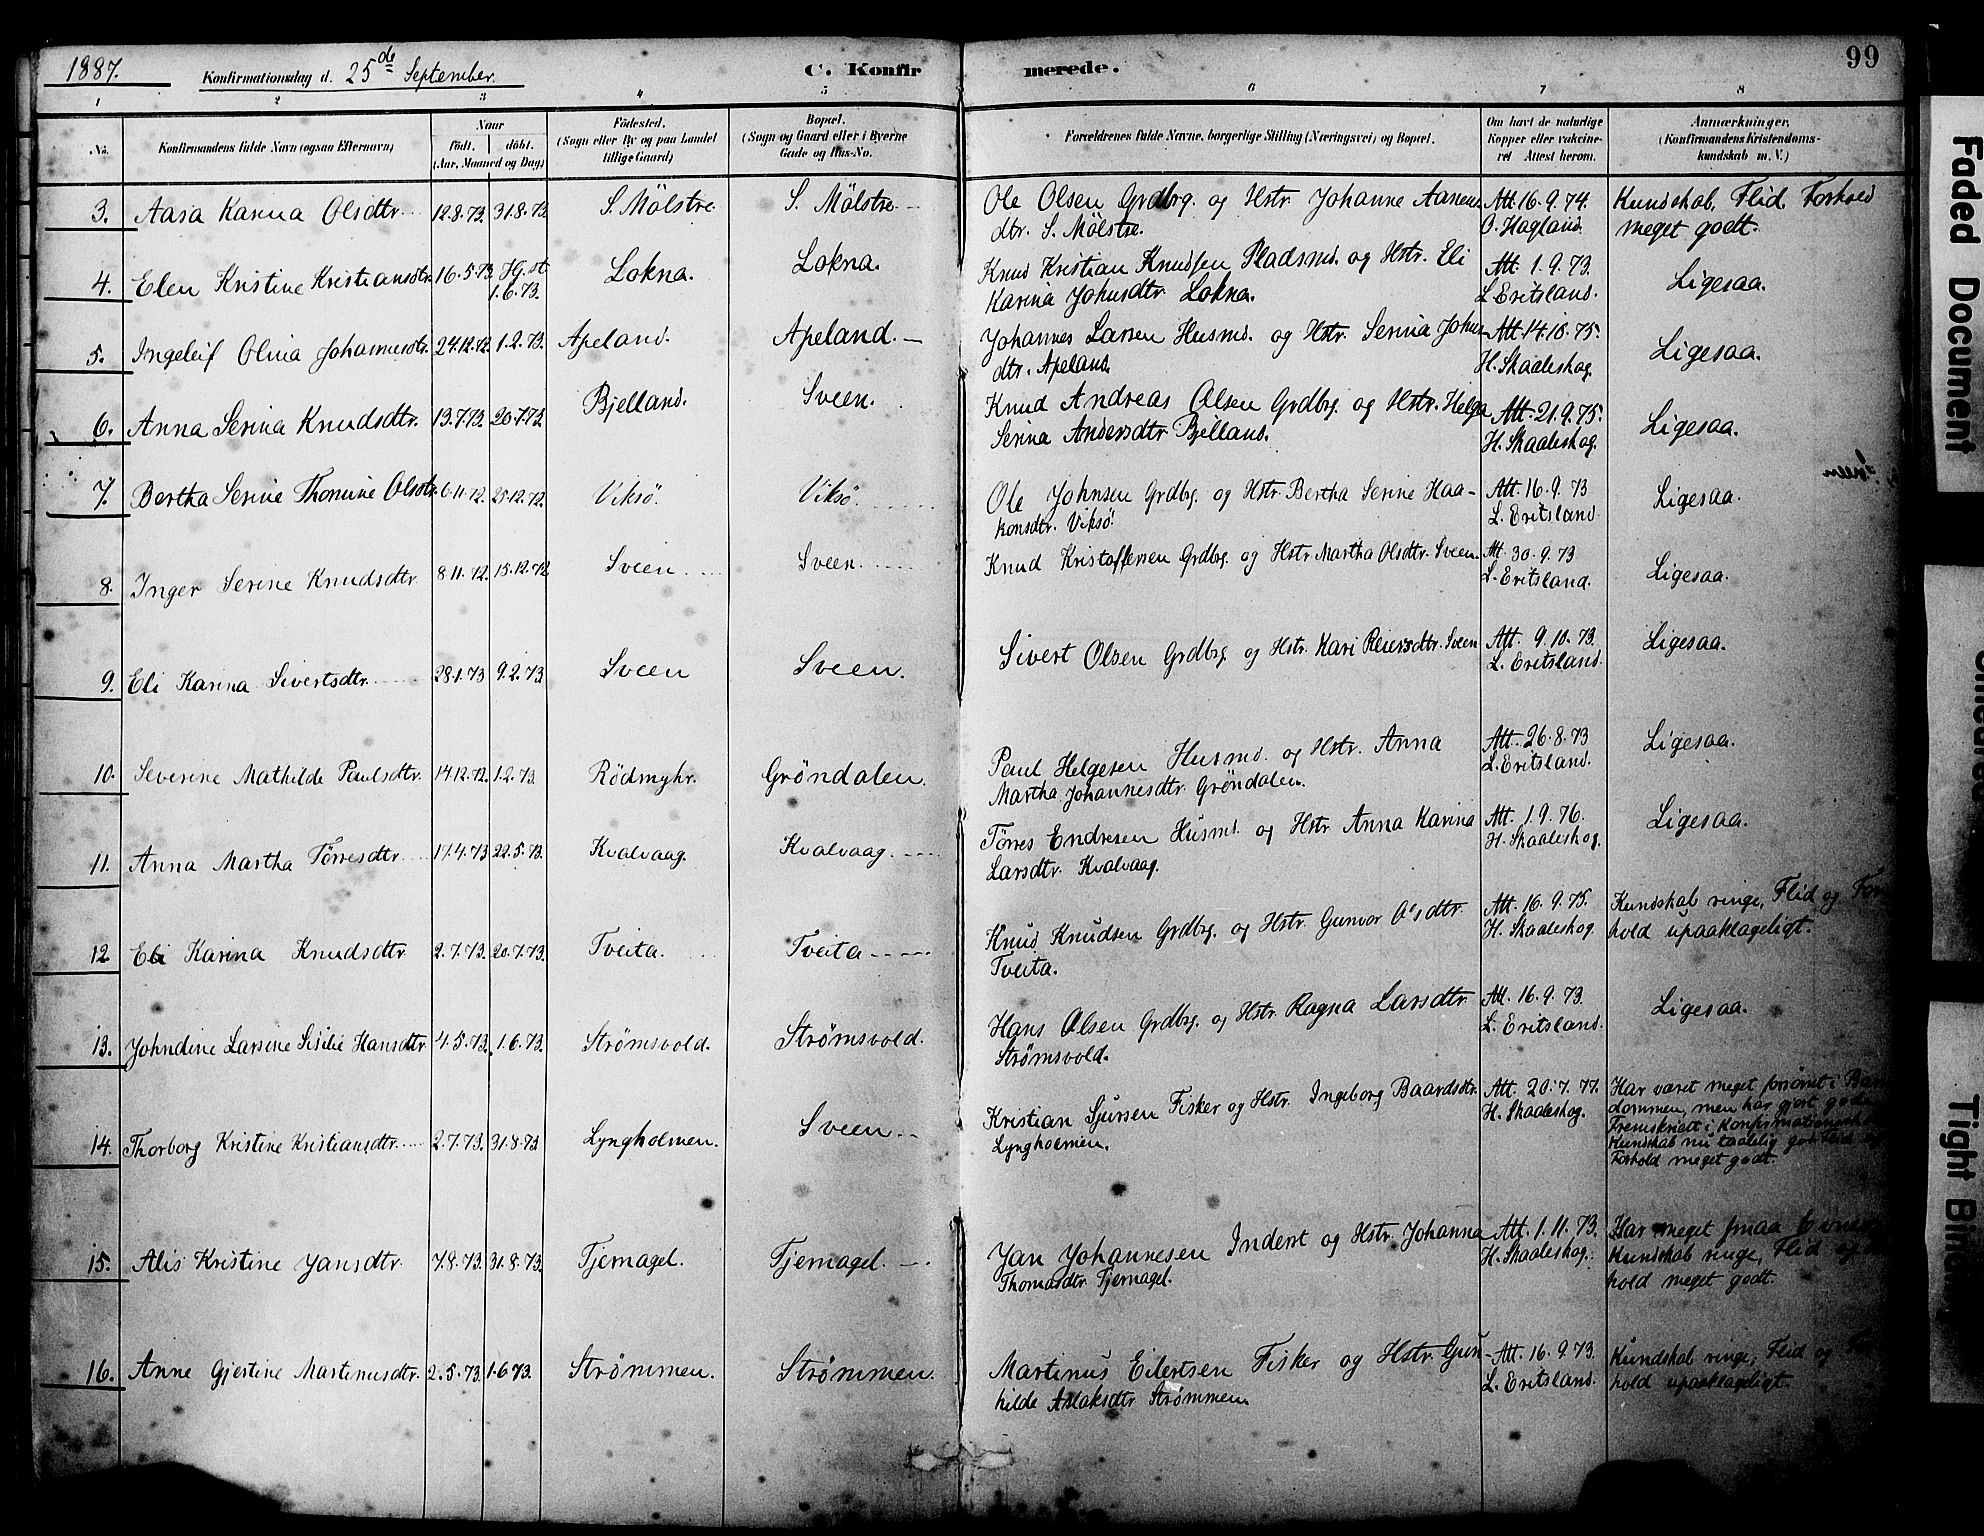 1887. Konfirmationsdag d. 25de September. C. Konfirmerede. 99
1 2 3 4 5 6 7 8
No. Konfirmandens fulde Navn (ogsaa Efternavn) Naar födt. döbt. (Aar, Maaned og Dag) Födested. (Sogn eller By og paa Landet tillige Gaard) Bopæl. (Sogn og Gaard eller i Byerne Gade og Hus-No. Forældrenes fulde Navne, borgerlige Stilling (Næringsvei) og Bopæl. Om havt de naturlige Kopper eller vakcineret Attest herom. Anmærkninger. (Konfirmandens Kristendomskundskab m. V.)
3. Aasa Karina Olsdtr. 12.8.73. 31.8.73. S. Mölstre. S. Mölstre. Ole Olsen Grdbrg. og Hstr. Johanne Aanens Att. 16.9.74. Kundskab, Flid, Forhold
dtr. S. Mölstre. O. Hagland. meget godt.
4. Elen Kristine Kristiansdtr. 16.5.73. Hj. st. 1.6.73. Lokna. Lokna. Knud Kristian Knudsen Pladsmd. og Hstr. Eli Att. 1.9.73. Ligesaa.
Karina Johnsdtr Lokna. L. Eritsland.
5. Ingeleif Olina Johannesdtr. 24.12.72. 1.2.73. Apeland. Apeland. Johannes Larsen Husmd. og Hstr. Serina Johns Att. 14.10.75. Ligesaa.
dtr. Apeland. H. Skaaleskog.
6. Anna Serina Knudsdtr. 13.7.73. 20.7.73. Bjelland. Sveen. Knud Andreas Olsen Grdbrg. og Hstr. Helga Att. 21.9.75. Ligesaa.
Serina Andersdtr Bjelland. H. Skaaleskog.
7. Bertha Serine Thomine Olsdtr. 6.11.72. 25.12.72. Viksö. Viksö. Ole Johnsen Grdbg. og Hstr. Bertha Serine Haa- Att. 16.9.73 Ligesaa.
konsdtr. Viksö. L. Eritsland
8. Inger Serine Knudsdtr. 8.11.72. 15.12.72 Sveen Sveen Knud Kristoffersen Grdbg. og Hstr. Martha Olsdtr. Sveen. Att. 30.9.73 Ligesaa.
L. Eritsland.
9. Eli Karina Sivertsdtr. 28.1.73 9.2.73. Sveen Sveen. Sivert Olsen Grdbrg. og Hstr. Kari Reiersdtr. Sveen Att. 9.10.73. Ligesaa.
L. Eritsland.
10. Severine Mathilde Paulsdtr. 14.12.72. 1.2.73. Rödmyhr. Gröndalen. Paul Helgesen Husmd. og Hstr. Anna Att. 26.8.73 Ligesaa.
Martha Johannesdtr. Gröndalen. L. Eritsland.
11. Anna Martha Törresdtr. 17.4.73 22.5.73. Kvalvaag. Kvalvaag. Törres Endresen Husmd. og Hstr. Anna Karina Att. 1.9.76. Ligesaa.
Larsdtr. Kvalvaag. H. Skaaleskog.
12. Eli Karina Knudsdtr. 2.7.73. 20.7.73. Tveita. Tveita Knud Knudsen Grdbg. og Hstr. Gunvor Olsdtr. Att. 16.9.75. Kundskab ringe, Flid og For
Tveita. H. Skaaleskog hold upaaklageligt.
13. Johndine Larsine Sisilie Hansdtr 4.5.73. 1.6.73. Strømsvold. Strømsvold. Hans Olsen Grdbg. og Hstr. Ragna Larsdtr. Att. 16.9.73. Ligesaa.
Strømsvold. L. Eritsland.
14. Thorborg Kristine Kristiansdtr. 2.7.73. 31.8.73 Lyngholmen. Sveen Kristian Sjursen Fisker og Hstr. Ingeborg Baardsdtr. Att. 20.7.77. Har været meget forsømt i
Lyngholmen. H. Skaaleskog. dommen, men har gjort gode
Fremskridt i
Kundskab nu taalelig god
Forhold meget godt.
15. Alis Kristine Jansdtr. 7.8.73. 31.8.73. Tjernagel. Tjernagel. Jan Johannesen Inderst og Hstr. Johanna Att. 1.11.73. Har meget smaa
Thomasdtr. Tjernagel. H. Skaaleskog. Kundskab ringe, Flid og
hold meget godt.
16. Anne Gjertine Martinusdtr. 2.5.73. 1.6.73. Strømmen. Strømmen. Martinus Eilertsen Fisker og Hstr. Gun- Att. 16.9.73. Kundskab ringe, Flid og
hilde Aslaksdtr Strømmen. L. Eritsland. hold upaaklageligt.
Faded Document
Tight Bind